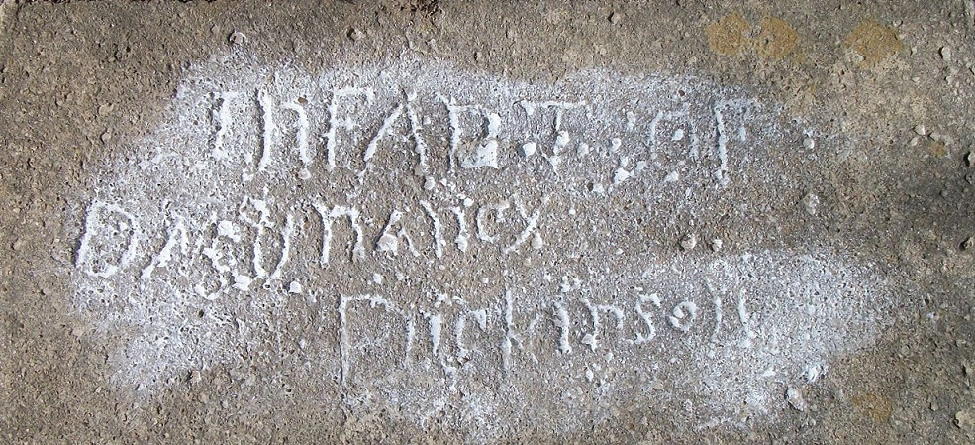 InFAnT. oF
nancy
Dickinson